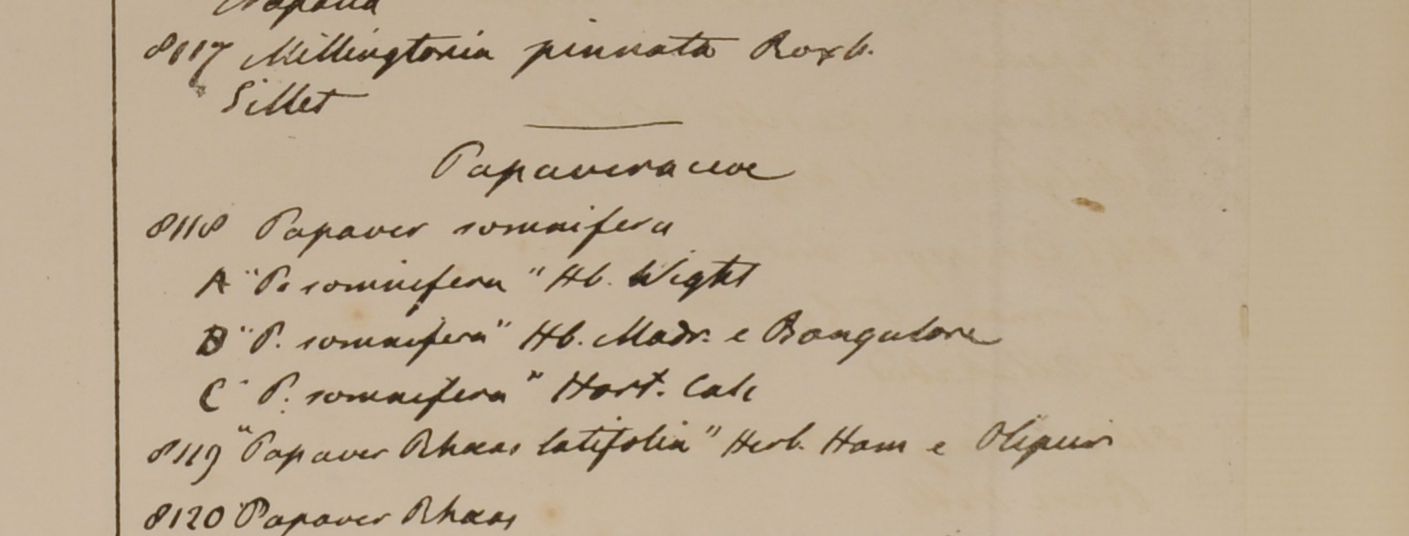 Napalia
8117 Millingtonia pinnata Roxb.
Sillet
Papaveraceae
8118 Papaver somnifera
A "P. somnifera" Hb. Wight
B "P. somnifera" Hb. Madr. e Bangalore
C "P. somnifera" Hort. Calc
8119 "Papaver Rhaeas latifolia" Herb. Ham e
8120 "Papaver Rhaeas